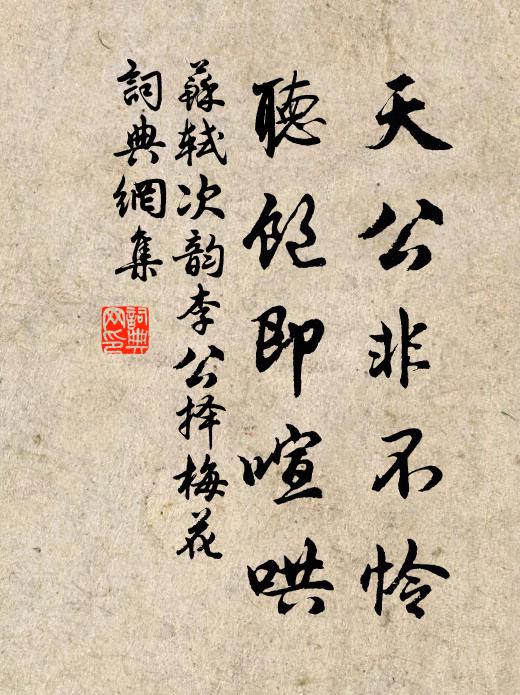 天公非不怜
聽飽即喧哄
蘇軾次韵李公择梅花
詞典網集
詞典
网印